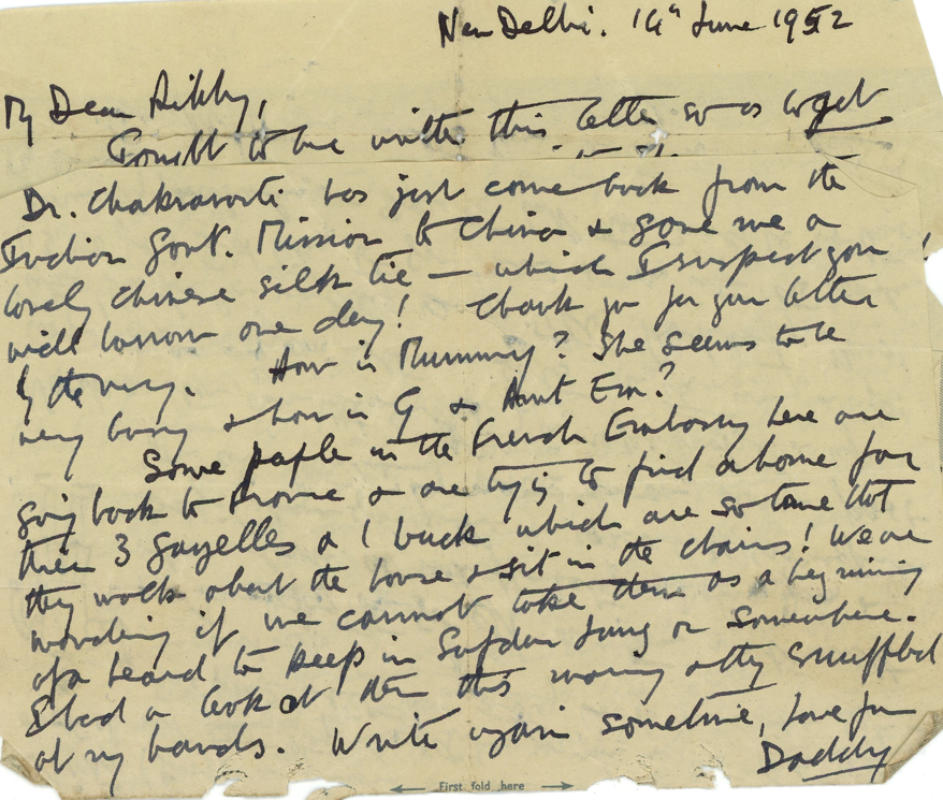 New Delhi. 14th June 1952
My Dear
I ought to have written this letter so as to get
Dr. Chakravarti has just come back from the
Indian Govt. Mission to China & gave me a
lovely Chinese silk tie – which I suspect you
will borrow one day! Thank you for your letter
by the way. How is Mummy? She seems to be
very busy & how is G & Aunt Em?
Some people in the French Embassy here are
going back to France & are trying to find a home for
their 3 gazelles & 1 buck which are so tame that
they walk about the house & sit in the chairs! We are
wondering if we cannot take them as a beginning
of a heard to keep in Safdar Jang or somewhere.
I had a look at them this morning & they snuffled
at my hands. Write again sometime, love from
Daddy
First fold here